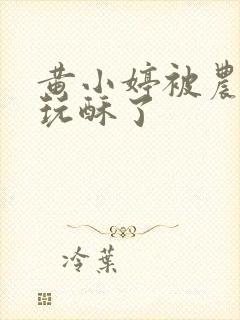 黄小婷被農
玩酥了
冷葉